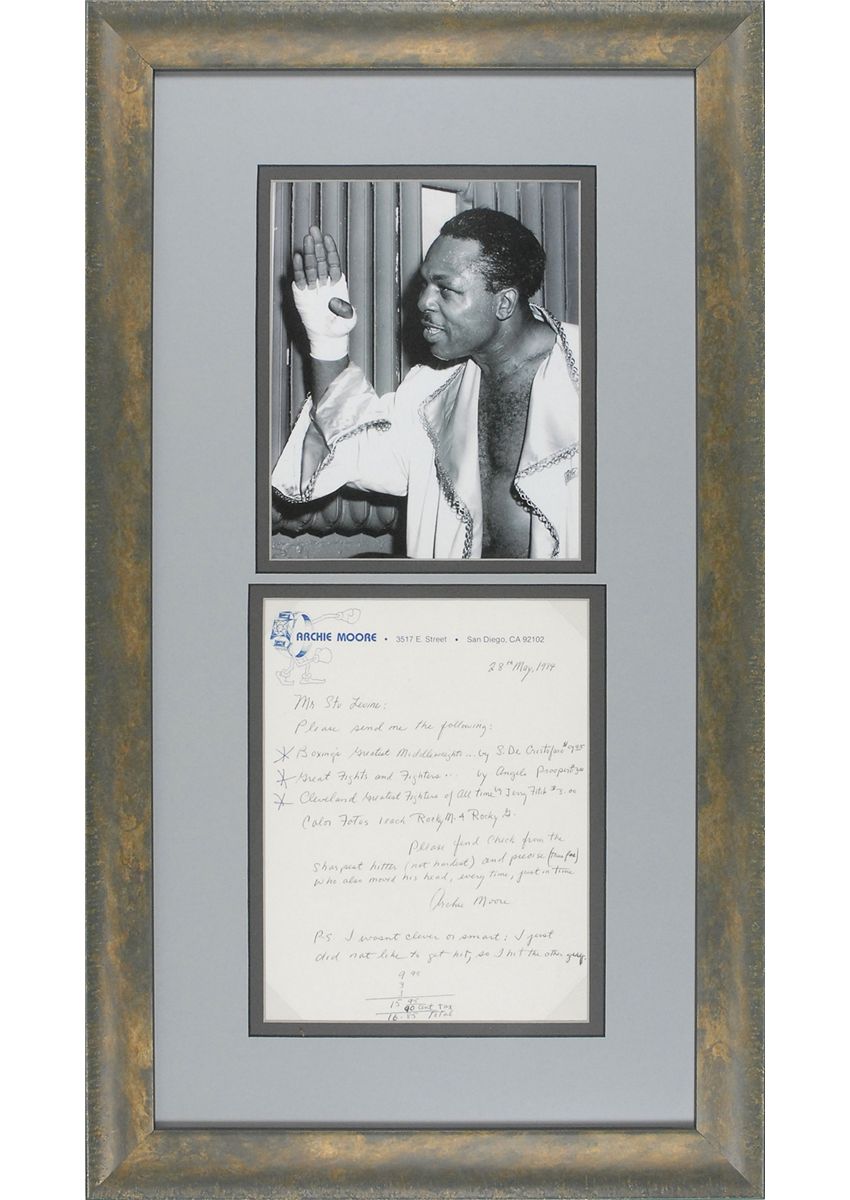 ARCHIE MOORE • 3517 E. Street • San Diego, CA 92102
28th May, 1984
Mr Stu Levine:
Please send me the following:
Boxing's Greatest Middleweights... by S. De Cristofaro $9.95
Great Fights and Fighters... by Angelo
Cleveland Greatest Fighters of All time by Jerry Fitch $3.00
Color Fotos 1 each Rocky M. & Rocky G.
Please find check from the
sharpest hitter (not hardest) and precise
who also moved his head, every time, just in time
Archie Moore
P.S. I wasnt clever or smart; I just
did not like to get hit, so I hit the other guy.
9 95
3
15 95
90 cent Tax
16.85 Total